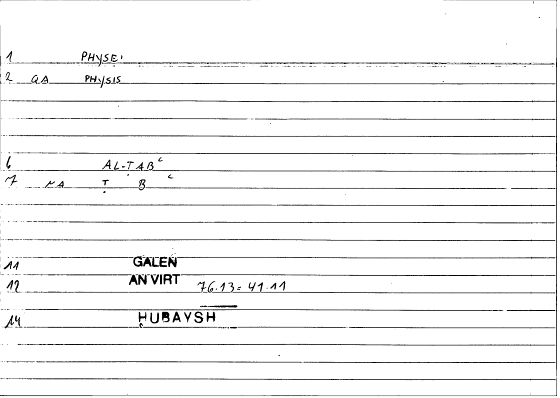 1 PHYSEI
2 QA PHYSIS
6 AL-ṬABʿ
7 MA Ṭ B ʿ
11 GALEN
12 AN VIRT 76.13 = 41.11
14 ḤUBAYSH